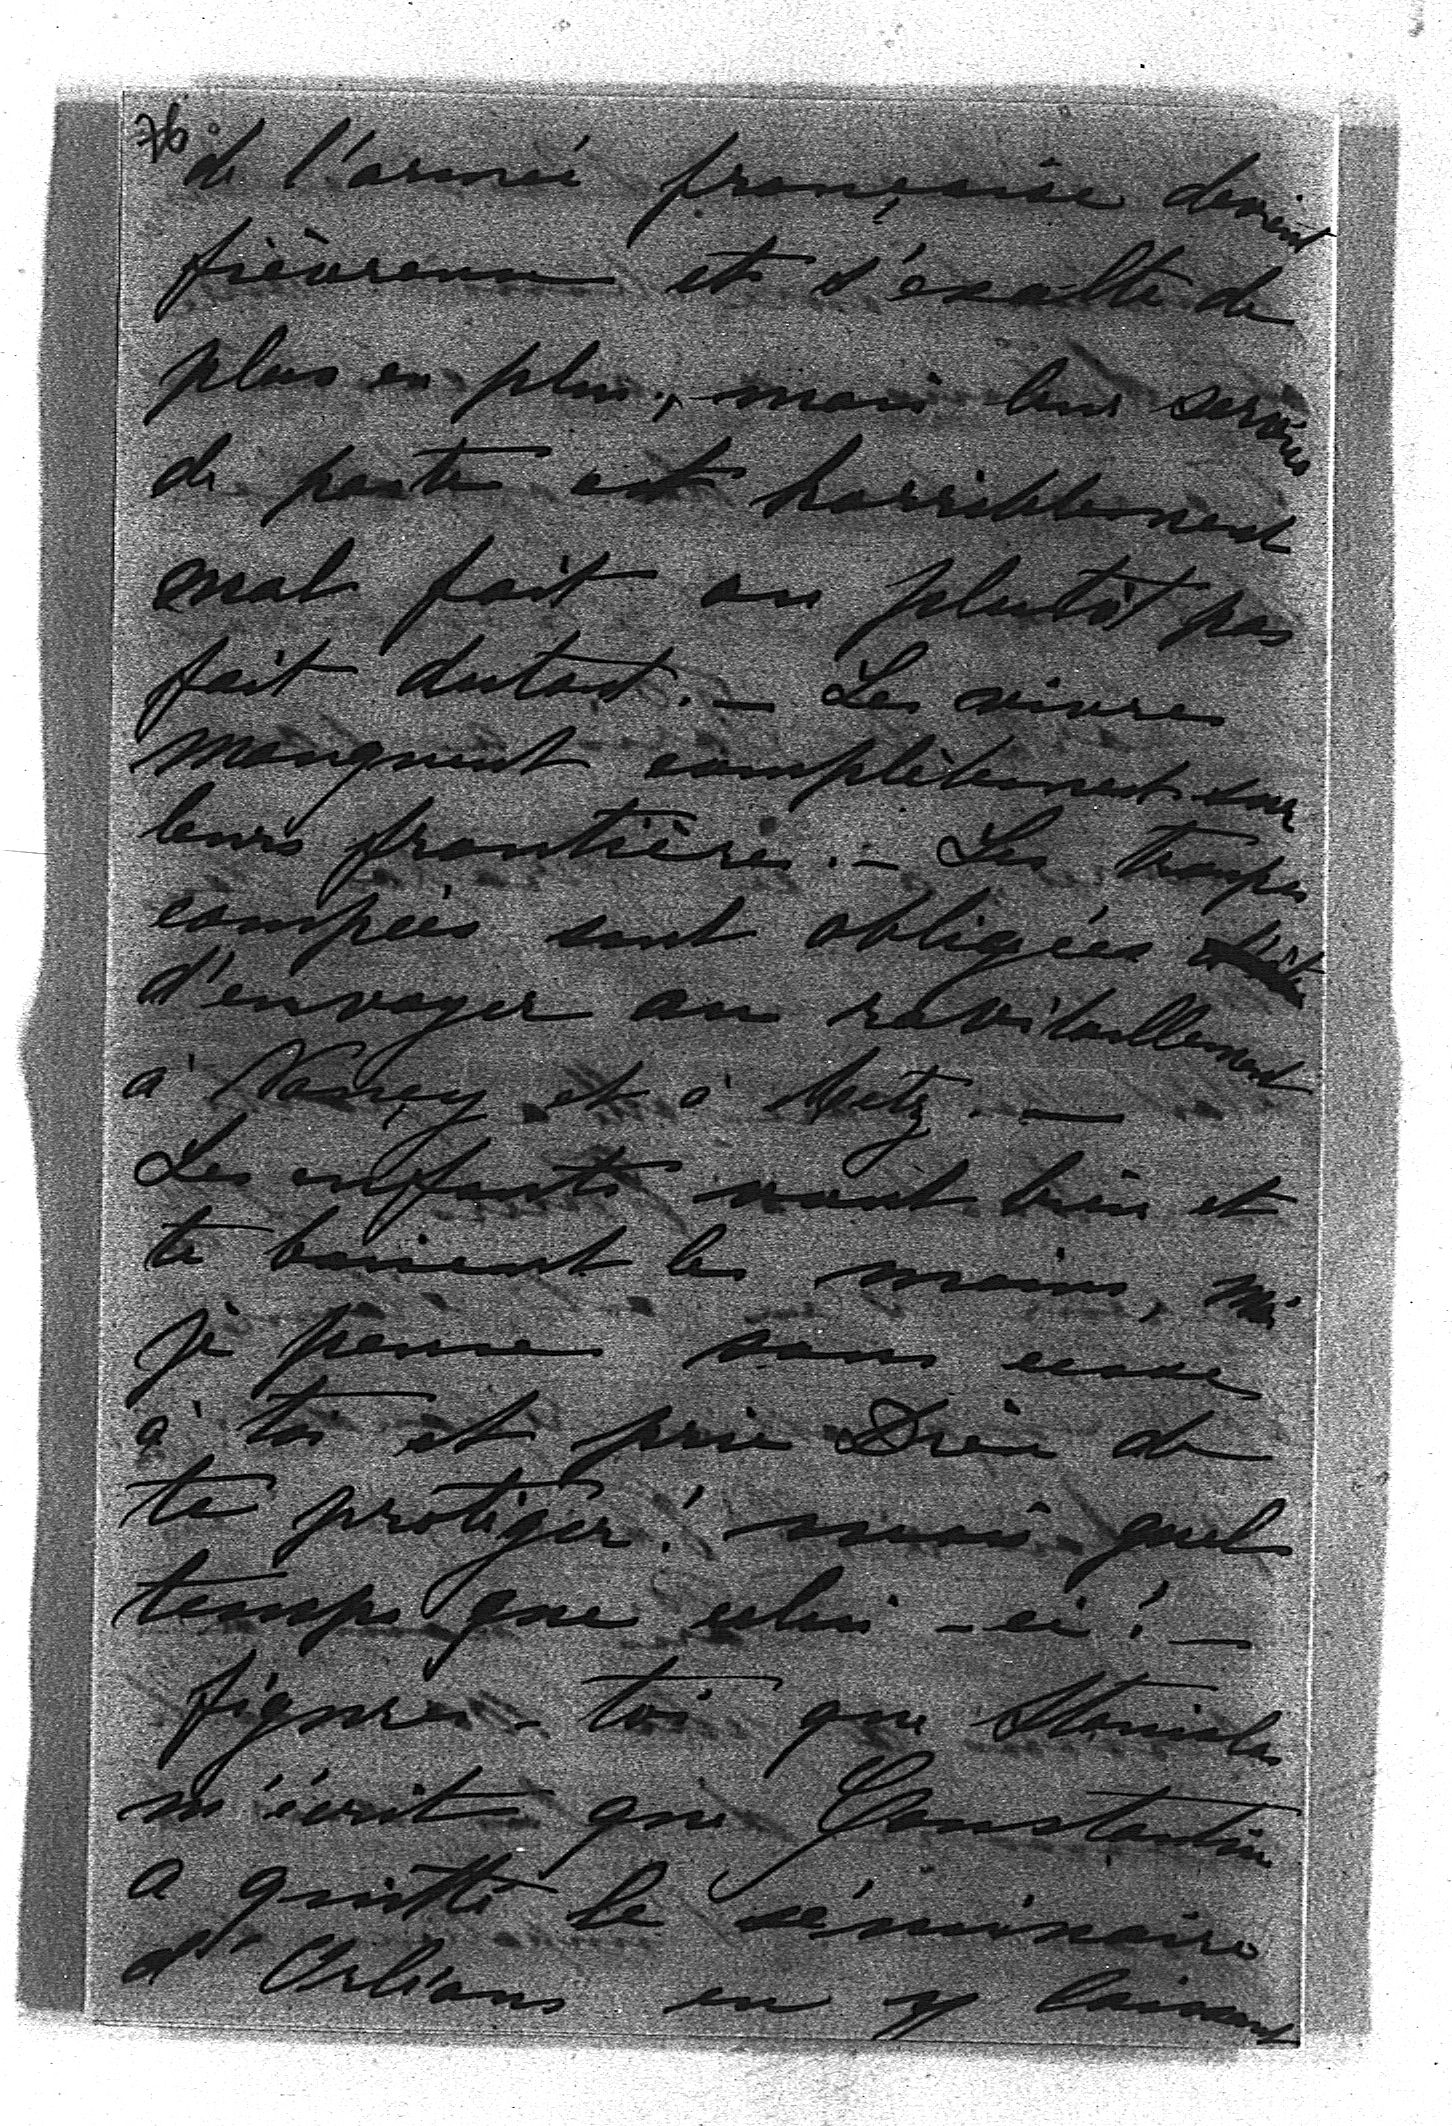 76
de l'armée française devient
fiévreuse et s'exalte de
plus en plus, mais leur service
de poste est horriblement
mal fait ou plutôt pas
fait dutout. — Les vivres
manquent complètement sur
leurs frontières. — Les troupes
campées sont obligées
d'envoyer au ravitaillement
à Nancy et à Metz. —
Les enfants vont bien et
te baisent les mains,
je pense sans cesse
à toi et prie Dieu de
te protéger! mais quel
temps que celui-ci! —
figures-toi que Stanislas
m'écrit que Constantin
a quitté le séminaire
d'Orléans en y laissant